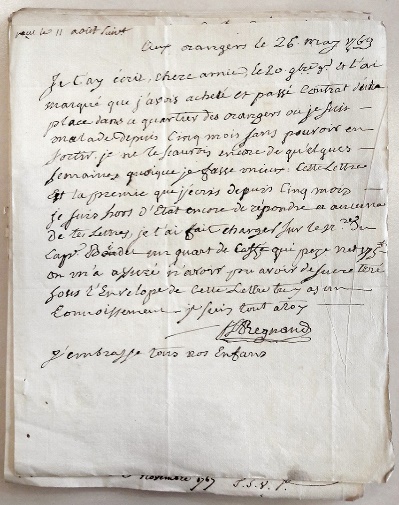 reçue le 11 août suivt
Aux orangers le 26 may 1769
Je t'ay écrit, chere amie, le 20 9bre dr et t'ai
marqué que j'avois acheté et passé Contrat de la
place dans ce quartier des orangers ou je suis
malade depuis Cinq mois sans pouvoir en
Sortir. je ne le scaurois encore de quelques
semaines quoique je fasse mieux. Cette Lettre
est la premie que j'ecris depuis Cinq mois
je suis hors d'Etat encore de répondre a aucune
de tes Lettres, je t'ai fait charger sur le
Cape un quart de Caffé qui peze net
on m'a assuré n'avoir pu avoir de sucre teré
sous l'Envelope de Cette Lettre tu y as un
Connoissement je suis tout a toy
Regnaud
J'embrasse tous nos Enfans
Novembre 1767 T. S. V. P.